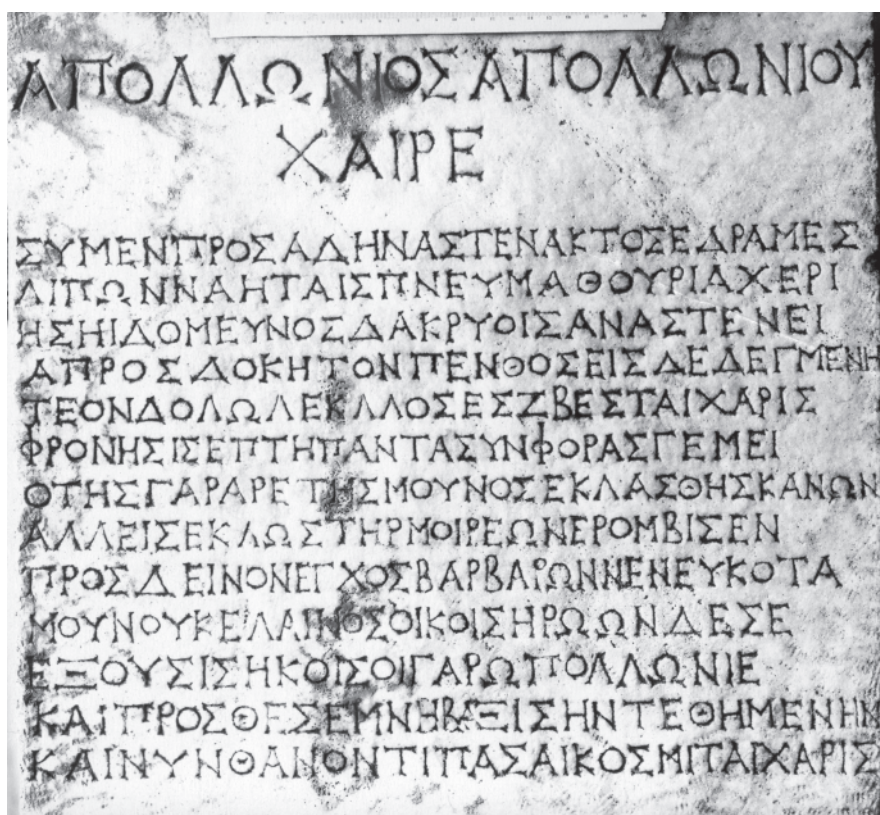 ΑΠΟΛΛΩΝΙΟΣΑΠΟΛΛΩΝΙΟΥ
ΧΑΙΡΕ
ΣΥΜΕΝΠΡΟΣΑΔΗΝΑΣΤΕΝΑΚΤΟΣΕΔΡΑΜΕΣ
ΛΙΠΩΝΝΑΗΤΑΙΣΠΝΕΥΜΑΘΟΥΡΙΑΧΕΡΙ
ΗΣΗΙΔΟΜΕΥΝΟΣΔΑΚΡΥΟΙΣΑΝΑΣΤΕΝΕΙ
ΑΠΡΟΣΔΟΚΗΤΟΝΠΕΝΘΟΣΕΙΣΔΕΔΕΓΜΕΝΗ
ΤΕΟΝΔΟΛΩΛΕΚΛΛΟΣΕΣΖΒΕΣΤΑΙΧΑΡΙΣ
ΦΡΟΝΗΣΙΣΕΠΤΗΠΑΝΤΑΣΥΝΦΟΡΑΣΓΕΜΕΙ
ΟΤΗΣΓΑΡΑΡΕΤΗΣΜΟΥΝΟΣΕΚΛΑΣΘΗΣΚΑΝΩΝ
ΑΛΛΕΙΣΕΚΛΩΣΤΗΡΜΟΙΡΕΩΝΕΡΟΜΒΙΣΕΝ
ΠΡΟΣΔΕΙΝΟΝΕΓΧΟΣΒΑΡΒΑΡΩΝΝΕΝΕΥΚΟΤΑ
ΜΟΥΝΟΥΚΕΛΑΙΝΟΣΟΙΚΟΙΣΗΡΩΩΝΔΕΣΕ
ΕΞΟΥΣΙΣΗΚΟΙΣΟΙΓΑΡΩΠΟΛΛΩΝΙΕ
ΚΑΙΠΡΟΣΘΕΣΕΜΝΗΒΑΞΙΣΗΝΤΕΘΗΜΕΝΗΝ
ΚΑΙΝΥΝΘΑΝΟΝΤΙΠΑΣΑΙΚΟΣΜΙΤΑΙΧΑΡΙΣ